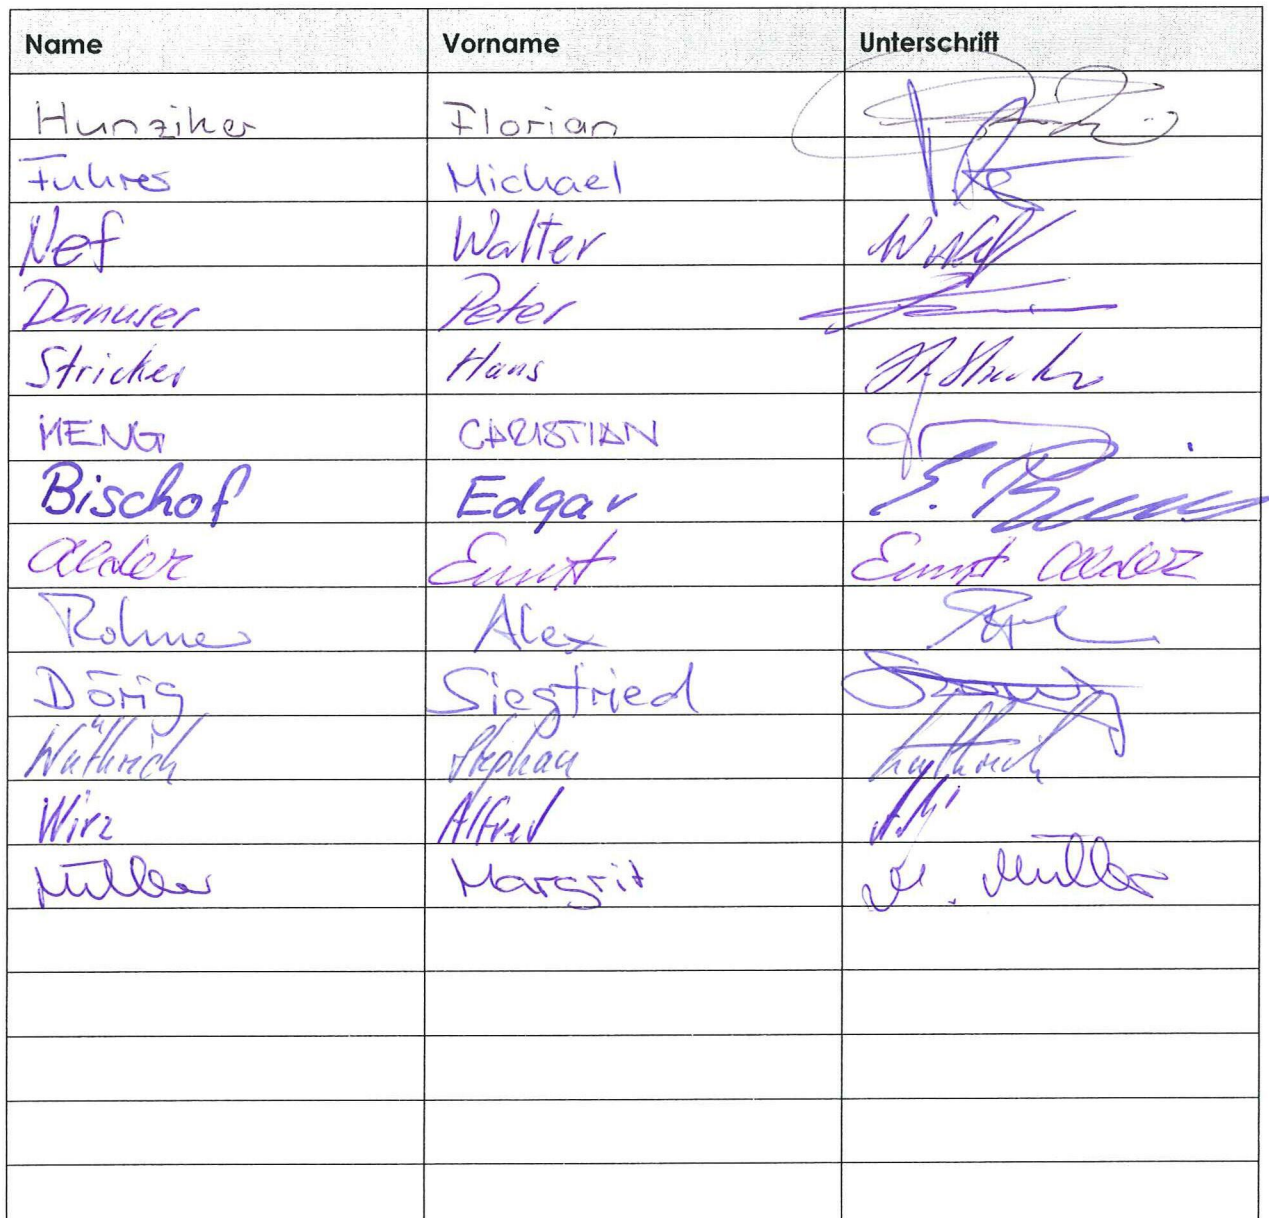 Name Vorname Unterschrift
Hunziker Florian
Führer Michael
Nef Walter W. Nef
Danuser Peter
Stricker Hans H. Stricker
MENG CHRISTIAN
Bischof Edgar E.
Alder Ernst Ernst Alder
Rohner Alex
Dörig Siegfried
Wüthrich Stephan Wüthrich
Wirz Alfred
Müller Margrit M. Müller